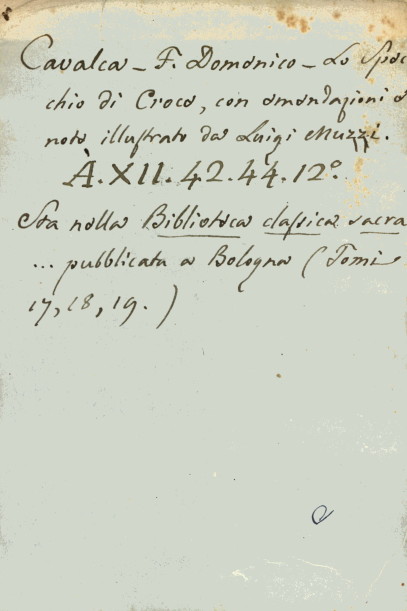 Cavalca - F. Domenico - Lo Spec
chio di Croce, con emendazioni e
note illustrato da Luigi Muzzi.
À.XII.42.44.12°.
Sta nella Biblioteca classica sacra
... pubblicata a Bologna (Tomi
17, 18, 19.)